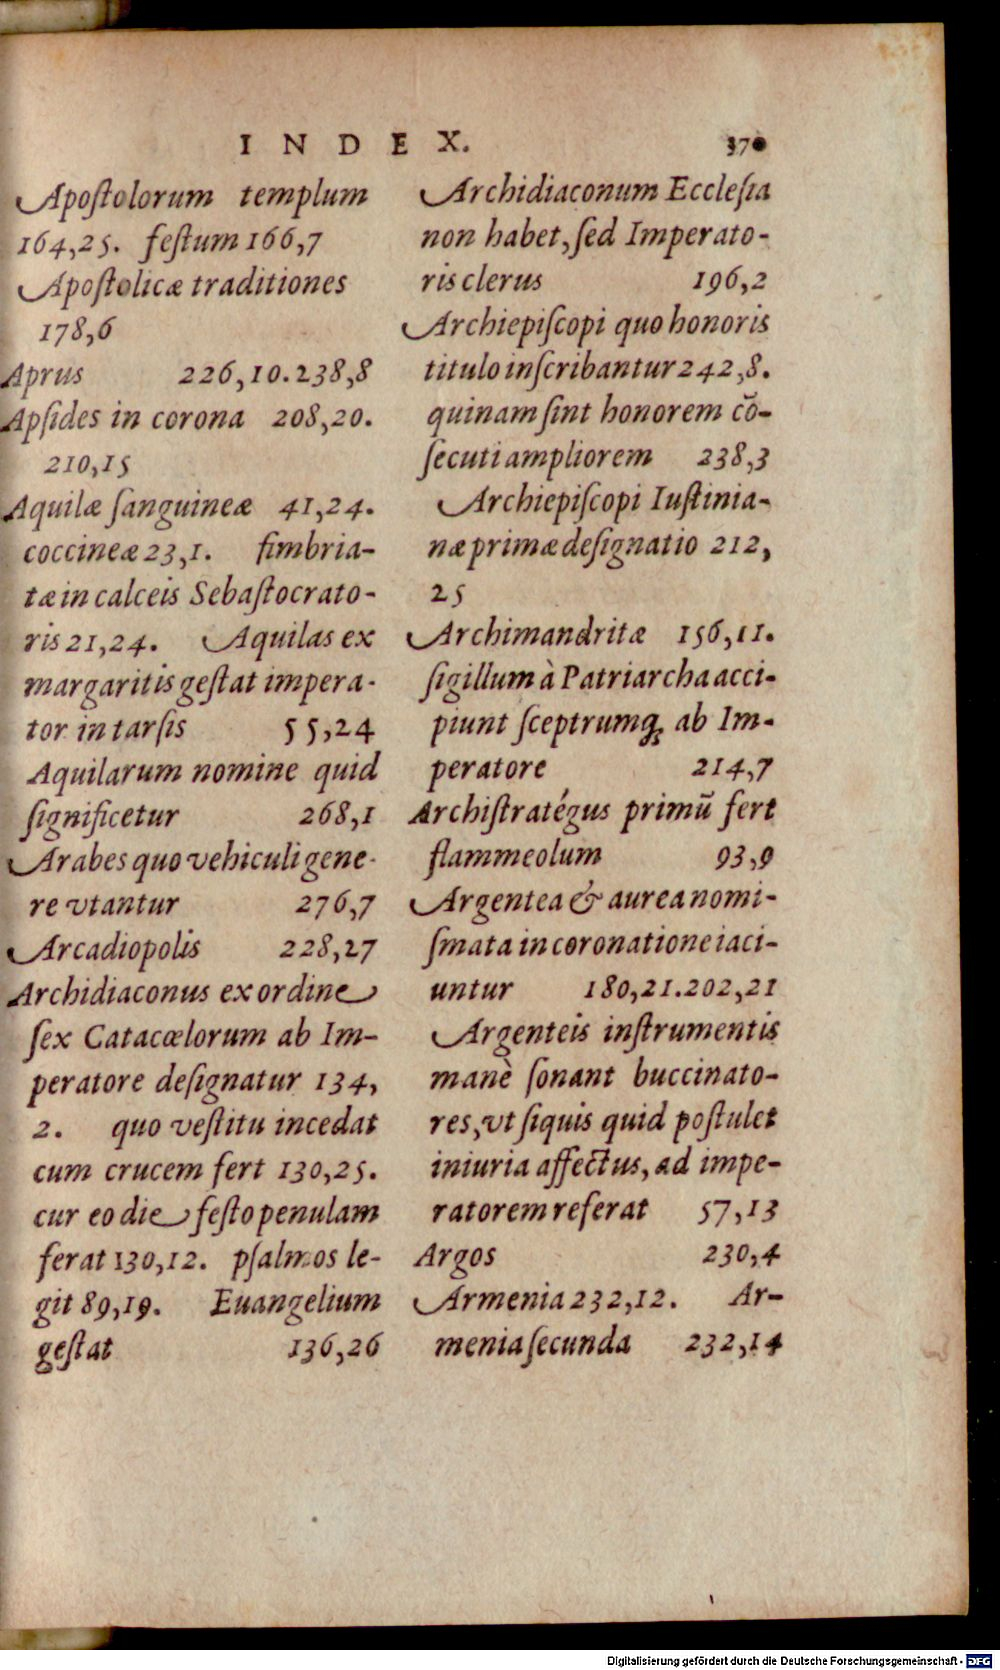 INDEX. 370
Apoſtolorum templum
164,25. feſtum 166,7
Apoſtolicæ traditiones
178,6
Aprus 226,10.238,8
Apſides in corona 208,20.
210,15
Aquilæ ſanguineæ 41,24.
coccineæ 23,1. fimbria-
tæ in calceis Sebaſtocrato-
ris 21,24. Aquilas ex
margaritis geſtat impera-
tor in tarſis 55,24
Aquilarum nomine quid
ſignificetur 268,1
Arabes quo vehiculi gene-
re vtantur 276,7
Arcadiopolis 228,27
Archidiaconus ex ordine
ſex Catacœlorum ab Im-
peratore deſignatur 134,
2. quo veſtitu incedat
cum crucem fert 130,25.
cur eo die feſto penulam
ferat 130,12. pſalmos le-
git 89,19. Euangelium
geſtat 136,26
Archidiaconum Eccleſia
non habet, ſed Imperato-
ris clerus 196,2
Archiepiſcopi quo honoris
titulo inſcribantur 242,8.
quinam ſint honorem cō-
ſecuti ampliorem 238,3
Archiepiſcopi Iuſtinia-
næ primæ deſignatio 212,
25
Archimandritæ 156,11.
ſigillum à Patriarcha acci-
piunt ſceptrumq; ab Im-
peratore 214,7
Archiſtratégus primū fert
flammeolum 93,9
Argentea & aurea nomi-
ſmata in coronatione iaci-
untur 180,21.202,21
Argenteis inſtrumentis
manè ſonant buccinato-
res, vt ſiquis quid poſtulet
iniuria affectus, ad impe-
ratorem referat 57,13
Argos 230,4
Armenia 232,12. Ar-
menia ſecunda 232,14
Digitalisierung gefördert durch die Deutsche Forschungsgemeinschaft - DFG